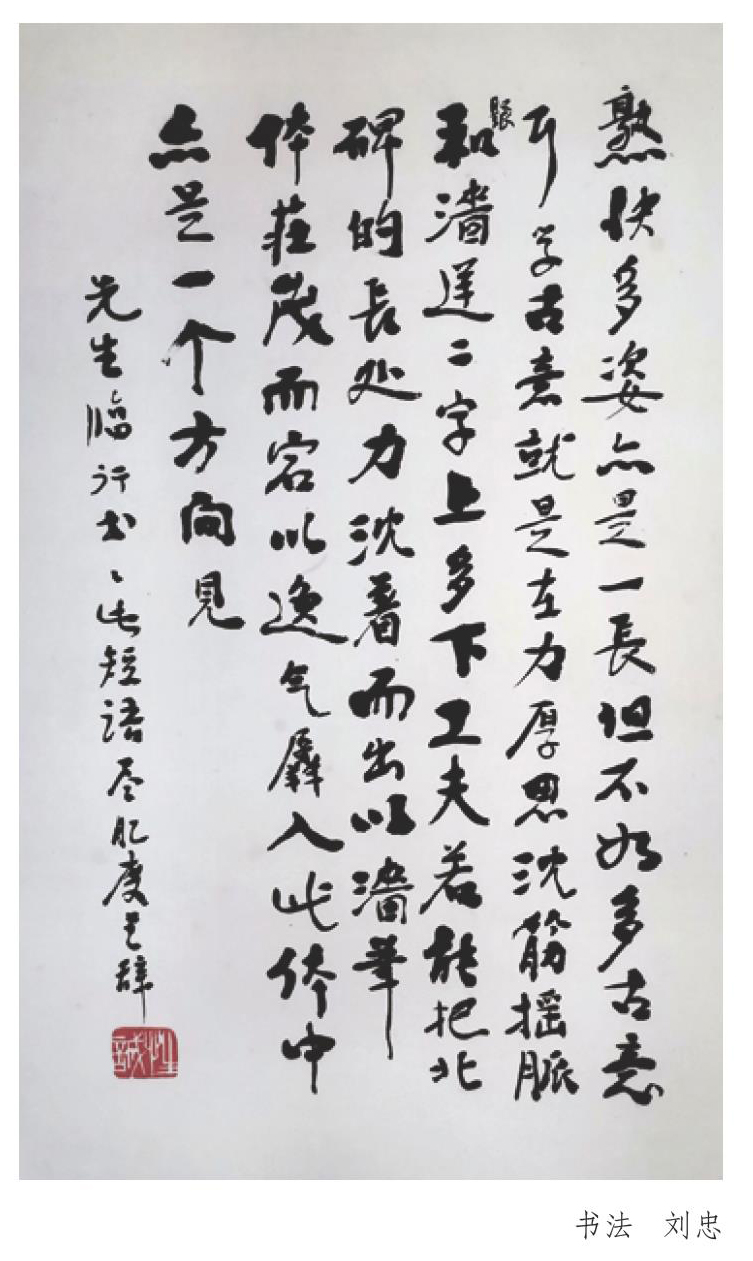 熟快多姿亦是一長但不如多古意
耳学古意就是在力厚思沈筋摇脈
和濇遲二字上多下工夫若能把北
碑的長处力沈著而出以濇筆
体莊茂而宕以逸气羼入此体中
亦是一个方向見
先生临行书此短語
书法 刘忠